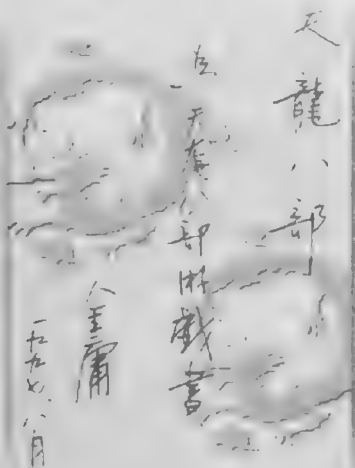 天龍八部
天龍八部游戲書
金庸
一九九七、八月